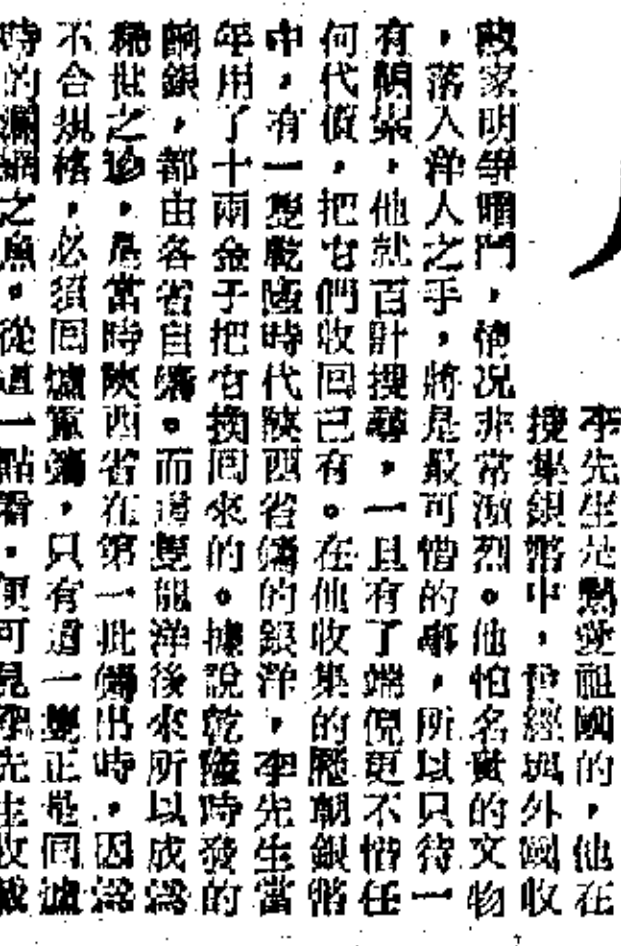 李先生是熱愛祖國的，他在
搜集銀幣中，曾經與外國收
藏家明爭暗鬥，情况非常激烈。他怕名貴的文物
，落入洋人之手，將是最可憎的事，所以只待一
有頭緒，他就百計搜尋，一旦有了端倪更不惜任
何代價，把它們收回已有。在他收集的歷朝銀幣
中，有一雙乾隆時代陝西省鑄的銀洋，李先生當
年用了十兩金子把它換回來的。據說乾隆時發的
餉銀，都由各省自鑄。而這雙龍洋後來所以成為
稀世之珍，是當時陝西省在第一批鑄出時，因為
不合規格，必須回爐重鑄，只有這一雙正是回爐
時的漏網之魚。從這一點看，便可見李先生收藏